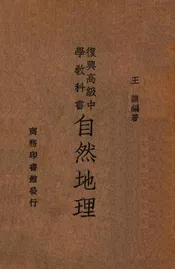 王謨編著
復興高級中
學教科書
自然地理
商務印書館發行